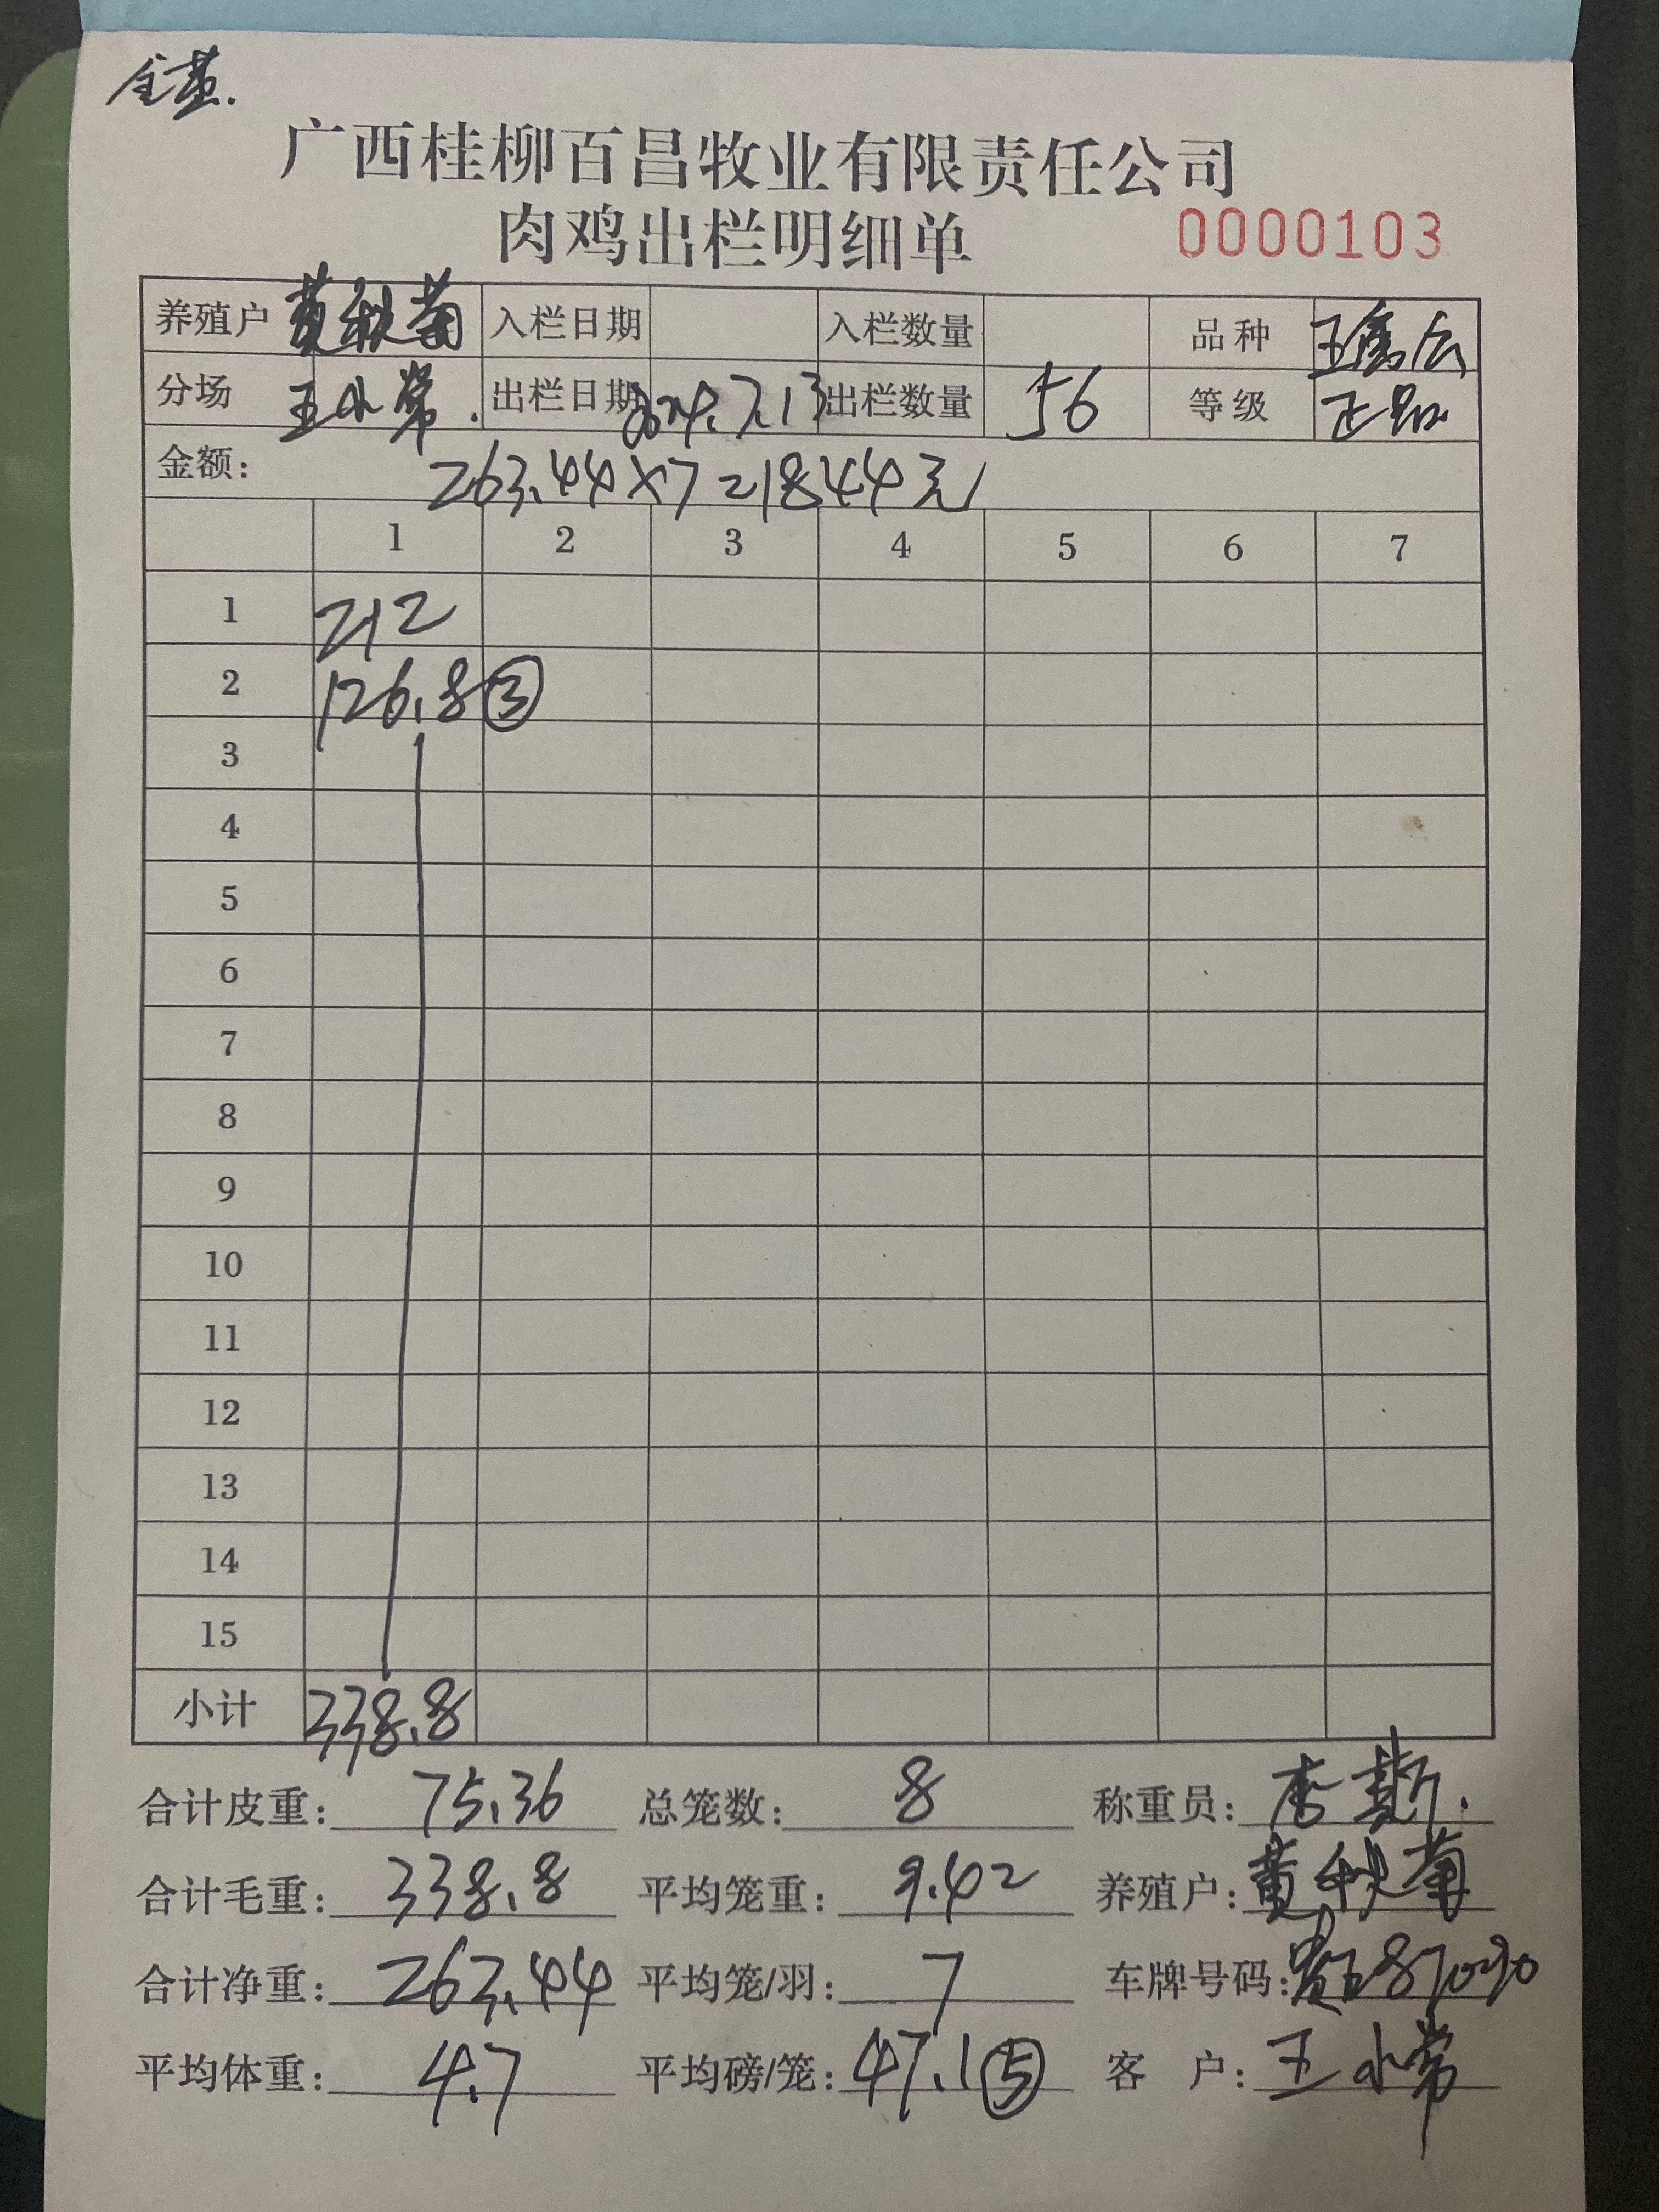 广西桂柳百昌牧业有限责任公司
肉鸡出栏明细单 0000103
养殖户 黄秋菊 入栏日期 入栏数量 品种
分场 王小常. 出栏日期 2024.7.13 出栏数量 56 等级 正品
金额: 263.44×7=1844元
1 2 3 4 5 6 7
1 212
2 126.8 ③
3
4
5
6
7
8
9
10
11
12
13
14
15
小计 338.8
合计皮重: 75.36 总笼数: 8 称重员:
合计毛重: 338.8 平均笼重: 9.42 养殖户: 黄秋菊
合计净重: 263.44 平均笼/羽: 7 车牌号码:
平均体重: 4.7 平均磅/笼: 47.1 ⑤ 客 户: 王小常